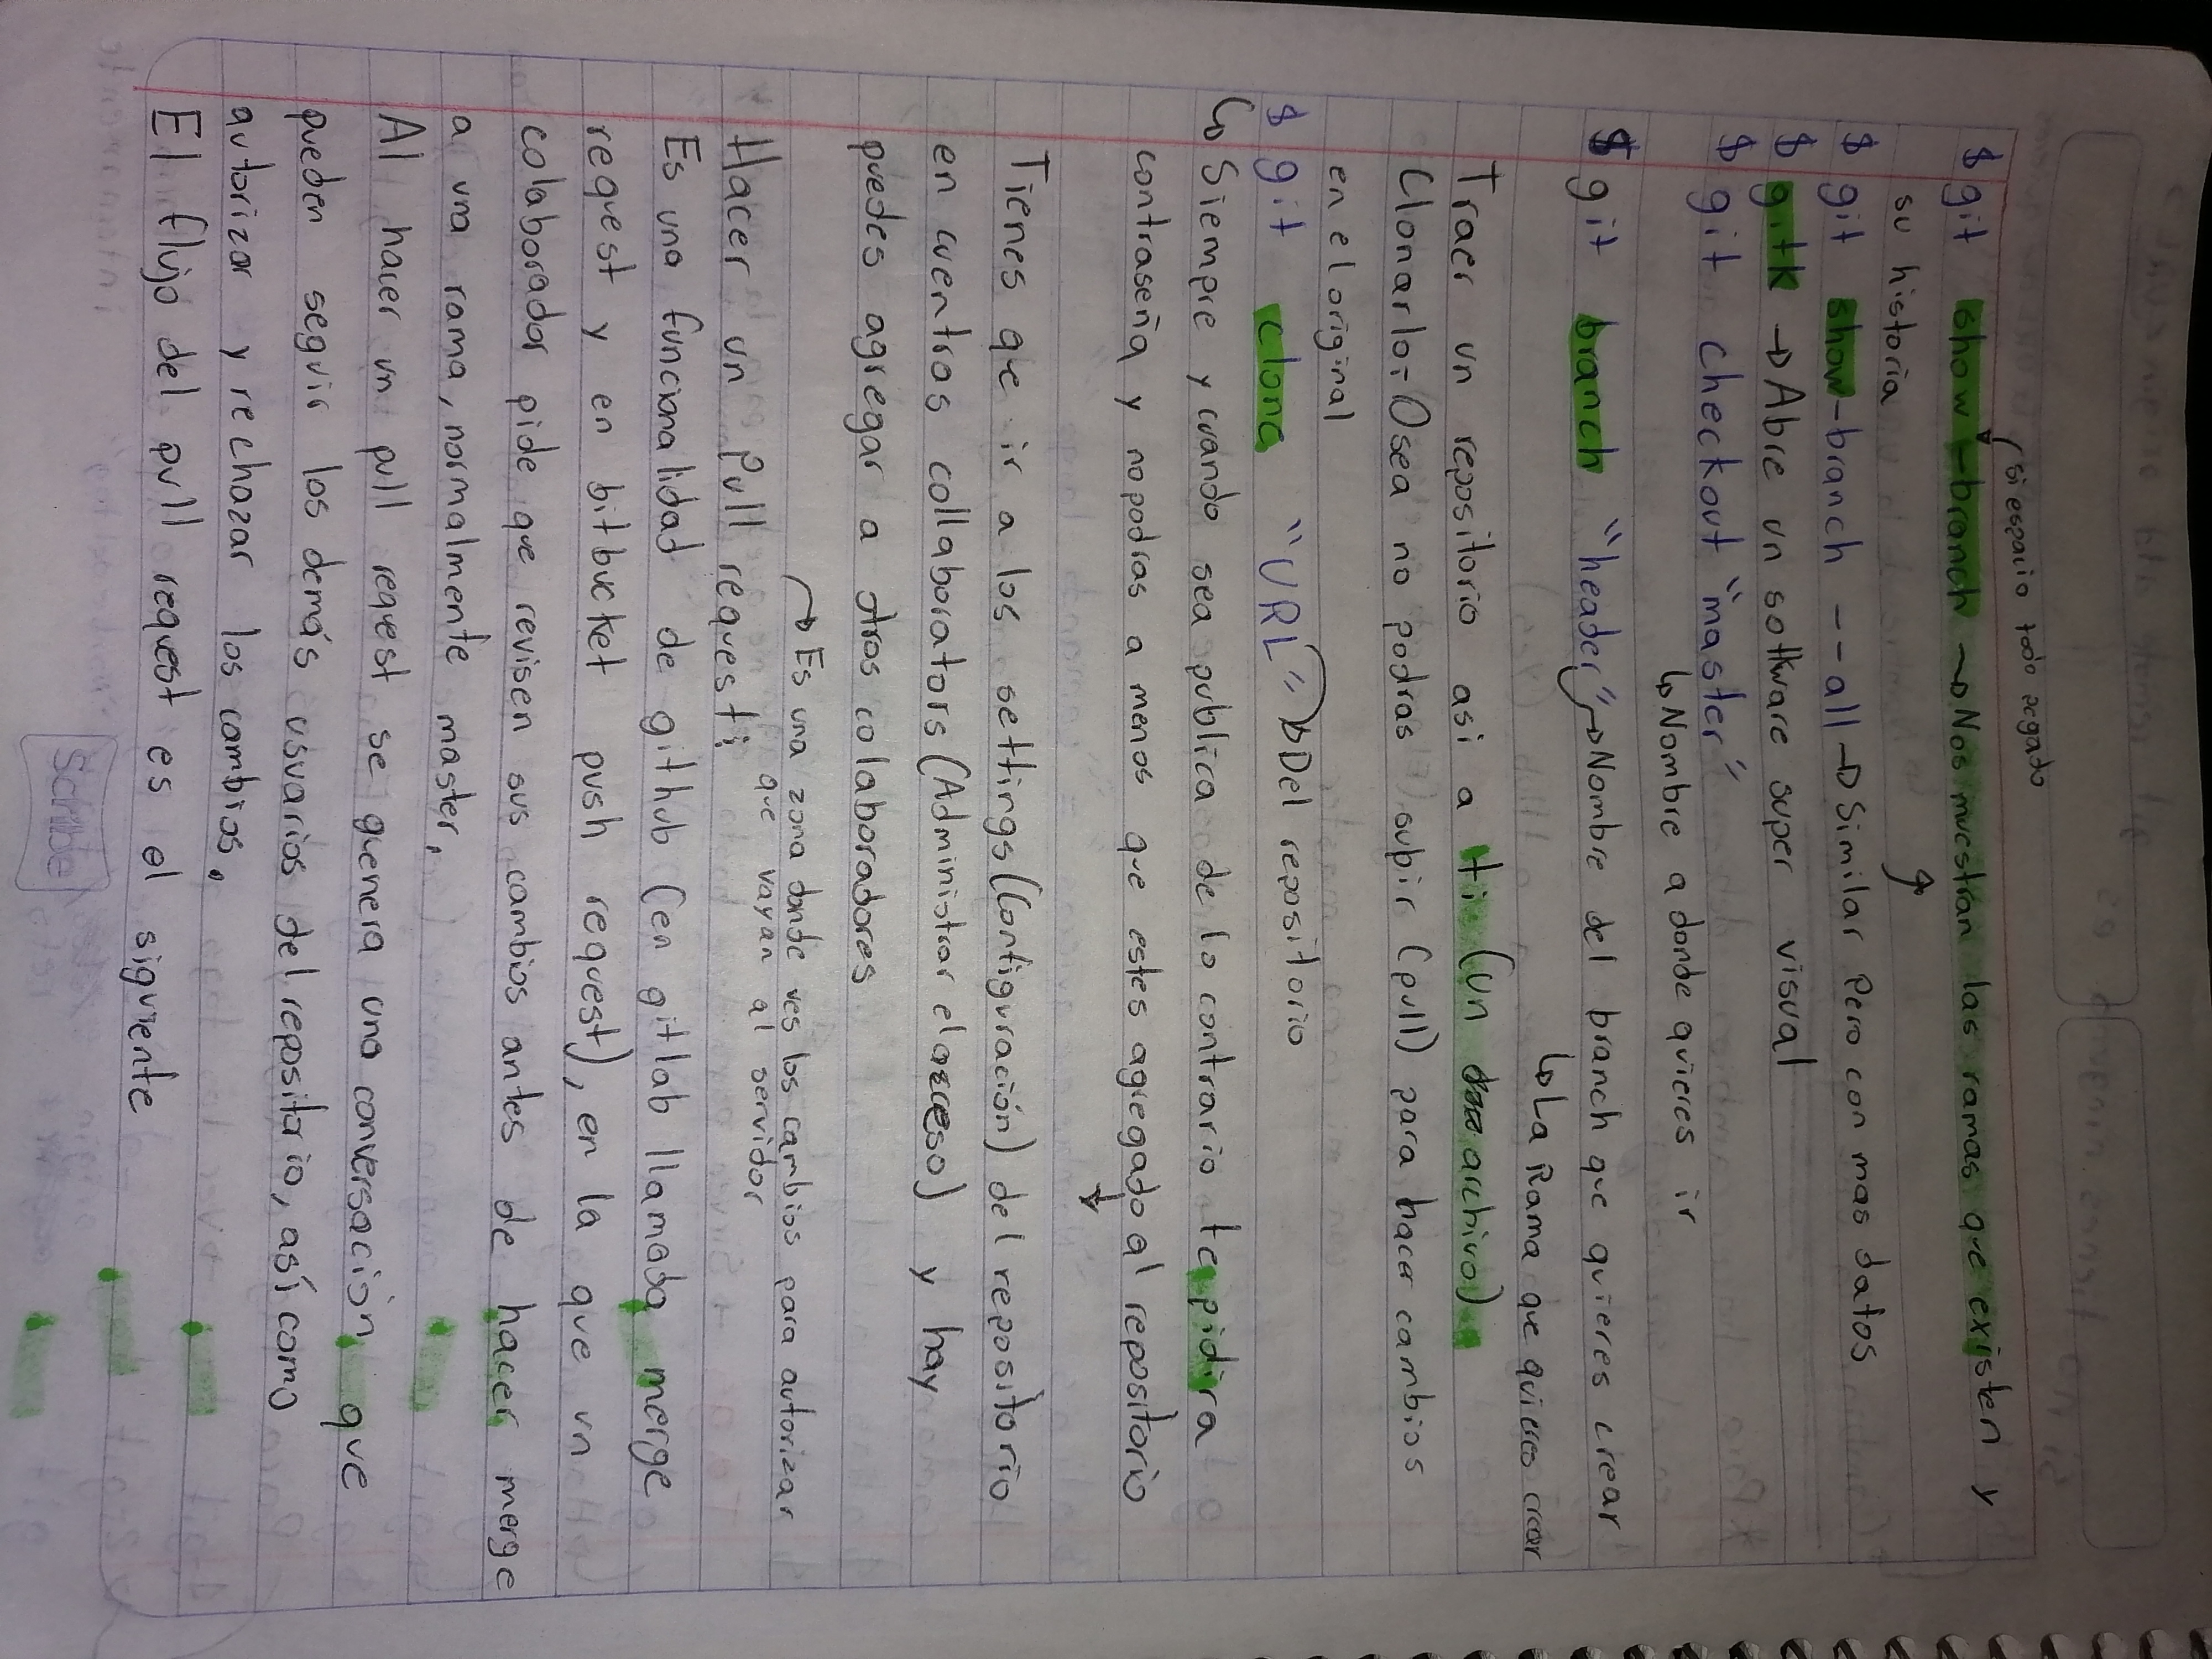 si espacio todo pegado
$ git show-branch → Nos muestran las ramas que existen y
su historia
$ git show-branch --all → Similar Pero con mas datos
$ gitk → Abre un software super visual
$ git checkout "master"
↳ Nombre a donde quieres ir
$ git branch "header" → Nombre del branch que quieres crear
↳ La Rama que quieres crear
Traer un repositorio asi a ti (un archivo)
Clonarlo: Osea no podras subir (pull) para hacer cambios
en el original
$ git clone "URL" → Del repositorio
↳ Siempre y cuando sea publica de lo contrario te pidira
contraseña y no podras a menos que estes agregado al repositorio
↓
Tienes que ir a los settings (Configuración) del repositorio
en cuentras collaborators (Administrar el acceso) y hay
puedes agregar a otros colaboradores
→ Es una zona donde ves los cambios para autorizar
que vayan al servidor
Hacer un Pull request:
Es una funcionalidad de github (en gitlab llamada merge
request y en bitbucket push request), en la que un
colaborador pide que revisen sus cambios antes de hacer merge
a una rama, normalmente master.
Al hacer un pull request se genera una conversación que
pueden seguir los demás usuarios del repositorio, así como
autorizar y rechazar los cambios.
El flujo del pull request es el siguiente
Scribe